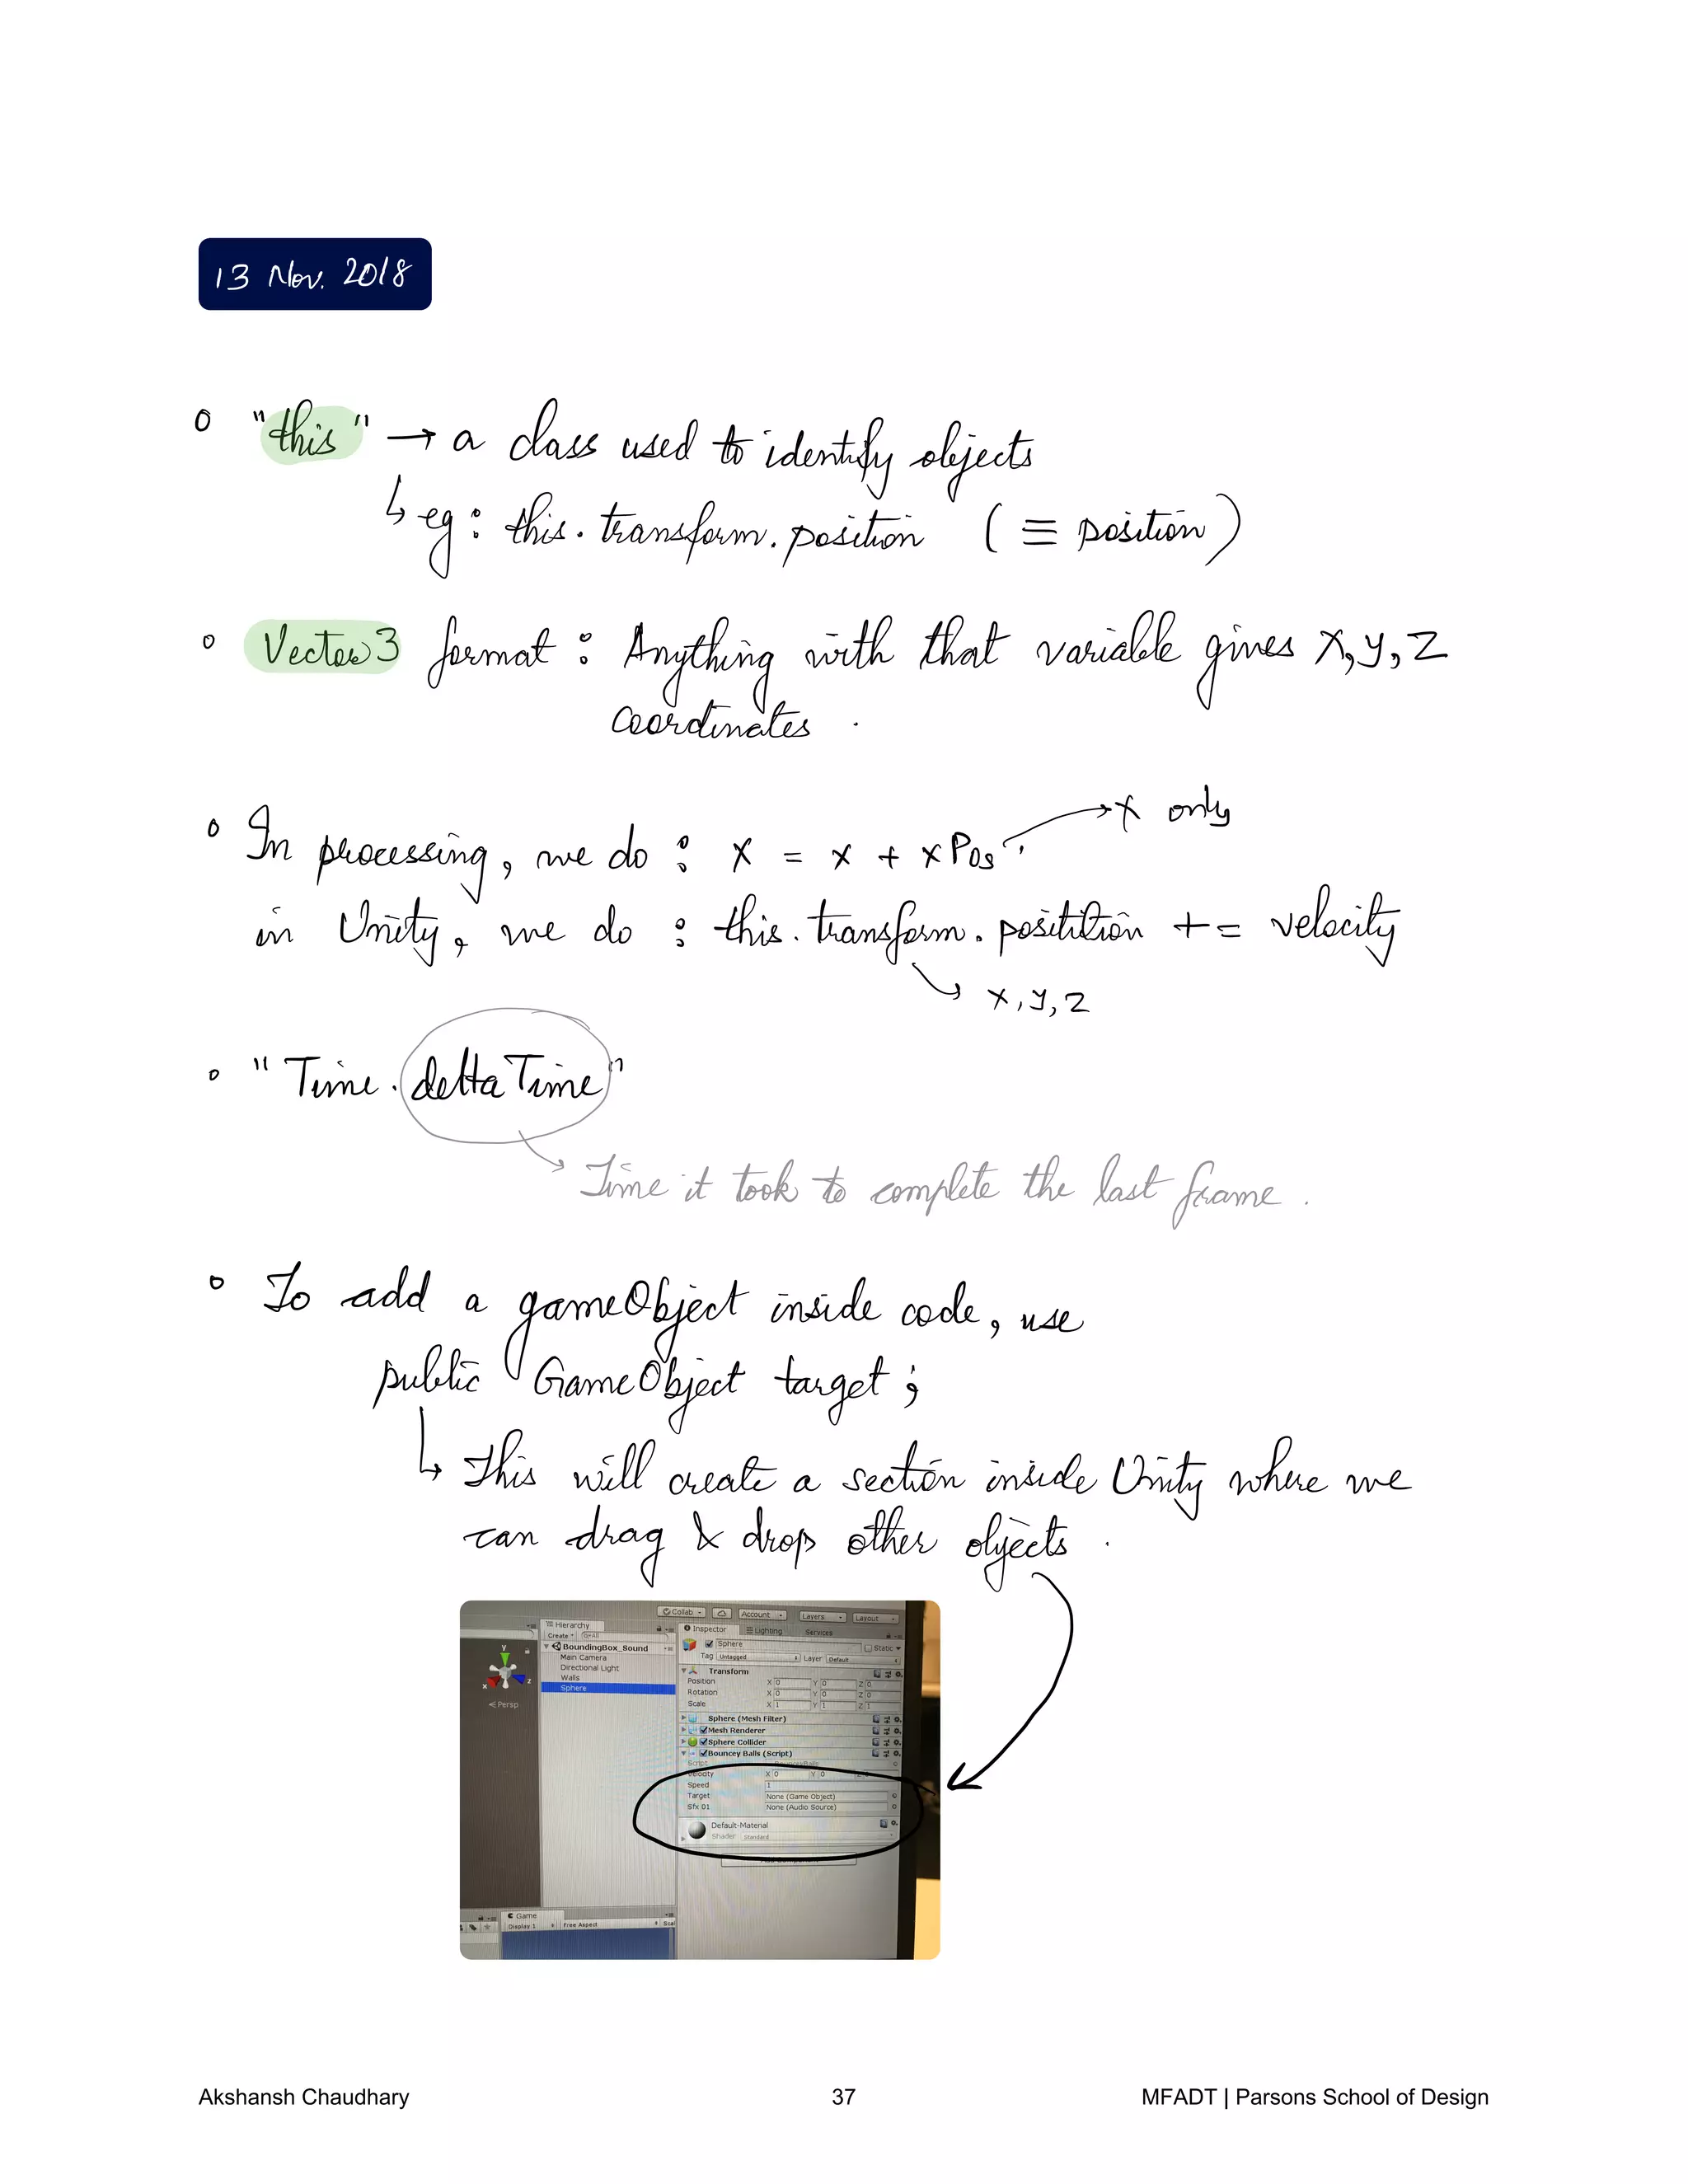 13 Nov. 2018
"this" → a class used to identify objects
↳ eg: this.transform.position (≡ position)
Vector3 format: Anything with that variable gives X, Y, Z
coordinates.
→ x only
In processing, we do: x = x + xPos.
in Unity, we do: this.transform.position += velocity
→ x, y, z
"Time.deltaTime"
→ Time it took to complete the last frame.
To add a gameObject inside code, use
public GameObject target;
↳ This will create a section inside Unity where we
can drag & drop other objects.
Collab Account Layers Layout
Hierarchy
Create
All
BoundingBox_Sound
Main Camera
Directional Light
Walls
Sphere
y
x
z
Persp
Inspector Lighting Services
Sphere Static
Tag Untagged Layer Default
Transform
Position X 0 Y 0 Z 0
Rotation X 0 Y 0 Z 0
Scale X 1 Y 1 Z 1
Sphere (Mesh Filter)
Mesh Renderer
Sphere Collider
Bouncey Balls (Script)
Script
Velocity X 0 Y 0
Speed 1
Target None (Game Object)
Sfx 01 None (Audio Source)
Default-Material
Shader Standard
Game
Display 1 Free Aspect Scal
Akshansh Chaudhary 37 MFADT | Parsons School of Design